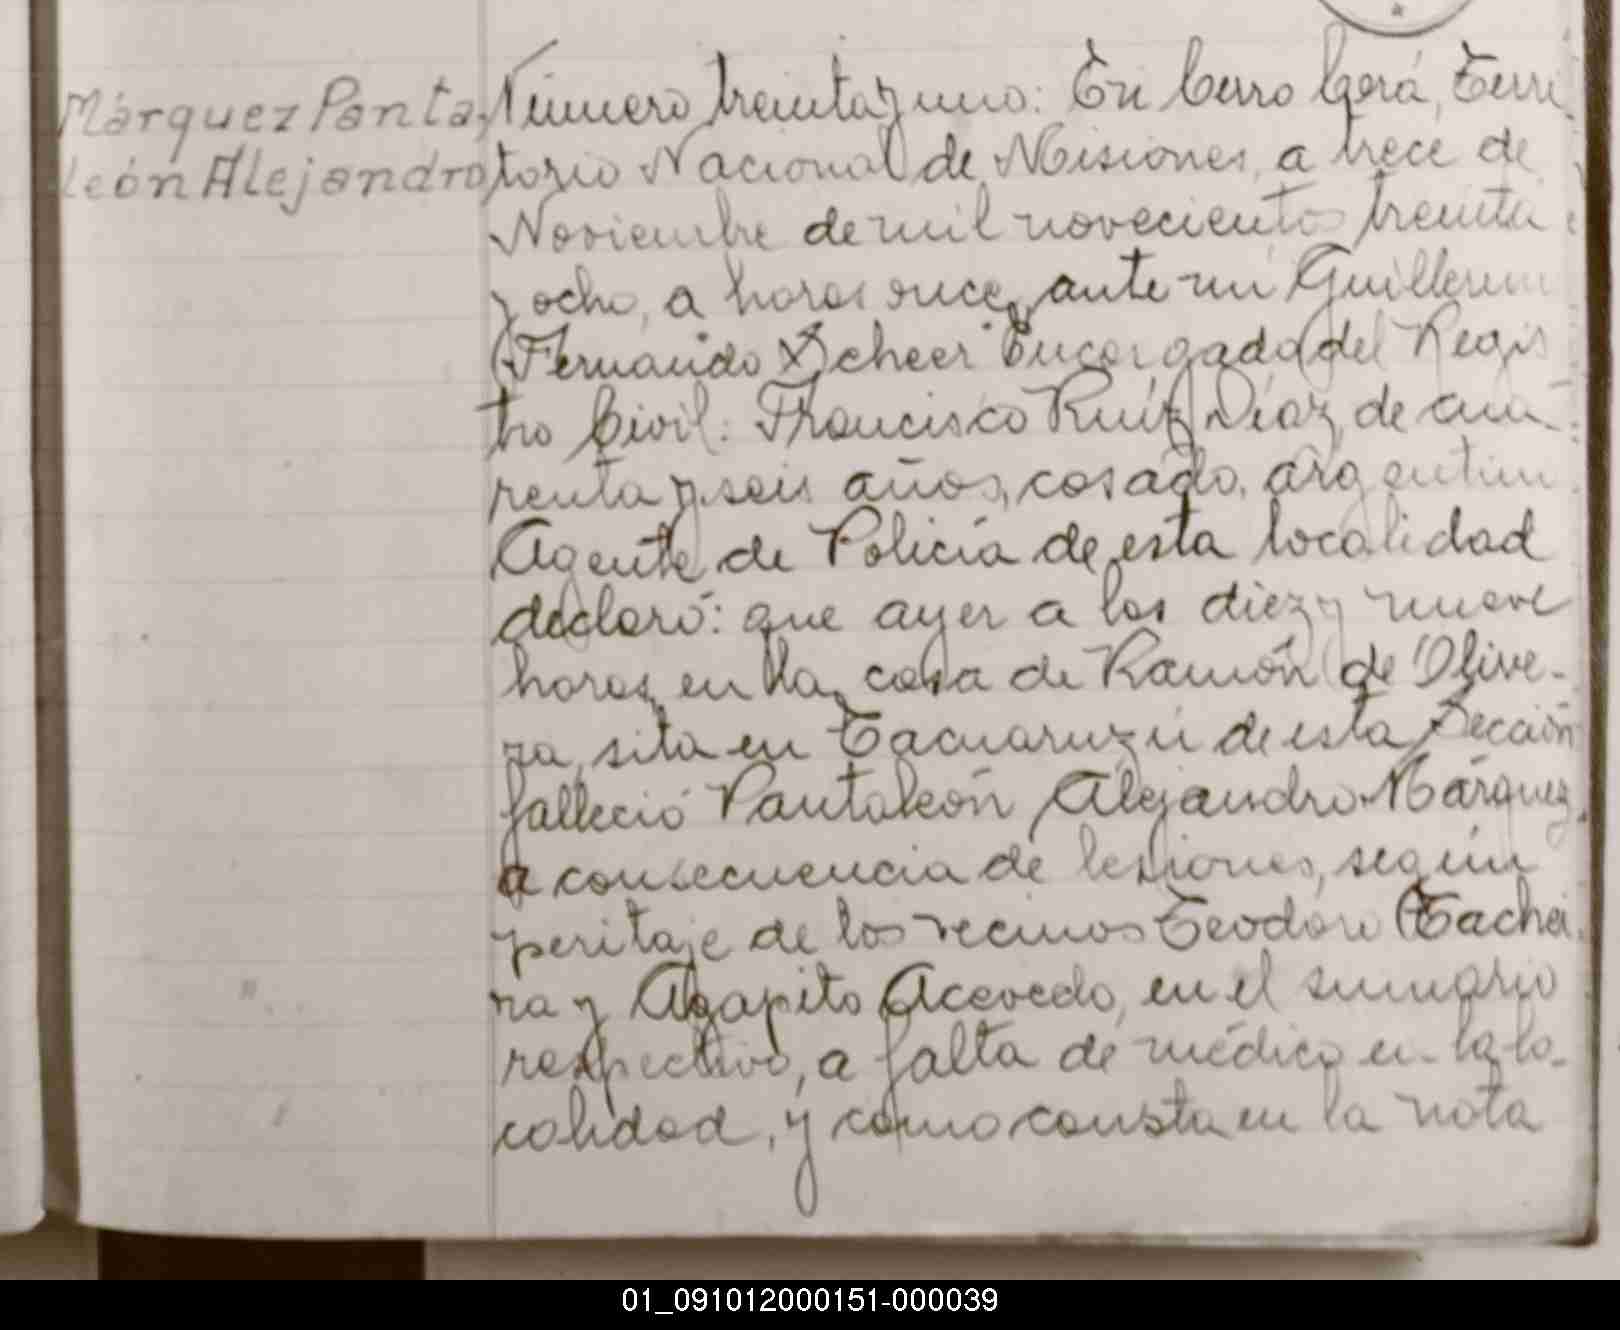 Márquez Panta-
león Alejandro
Número treinta y uno: En Cerro Corá, Terri
torio Nacional de Misiones, a trece de
Noviembre de mil novecientos treinta
y ocho, a horas once, ante mí Guillermo
Fernando Scheer Encargado del Regis
tro Civil: Francisco Ruíz Díaz, de cua-
renta y seis años, casado, argentino
Agente de Policía de esta localidad
declaró: que ayer a las diez y nueve
horas, en la casa de Ramón de Olive-
ra, sita en Tacuaruzú de esta Sección
falleció Pantaleón Alejandro Márquez,
a consecuencia de lesiones, según
peritaje de los vecinos Teodoro Tachei
ra y Agapito Acevedo, en el sumario
respectivo, a falta de médico en la lo-
calidad, y como consta en la nota
01_091012000151-000039